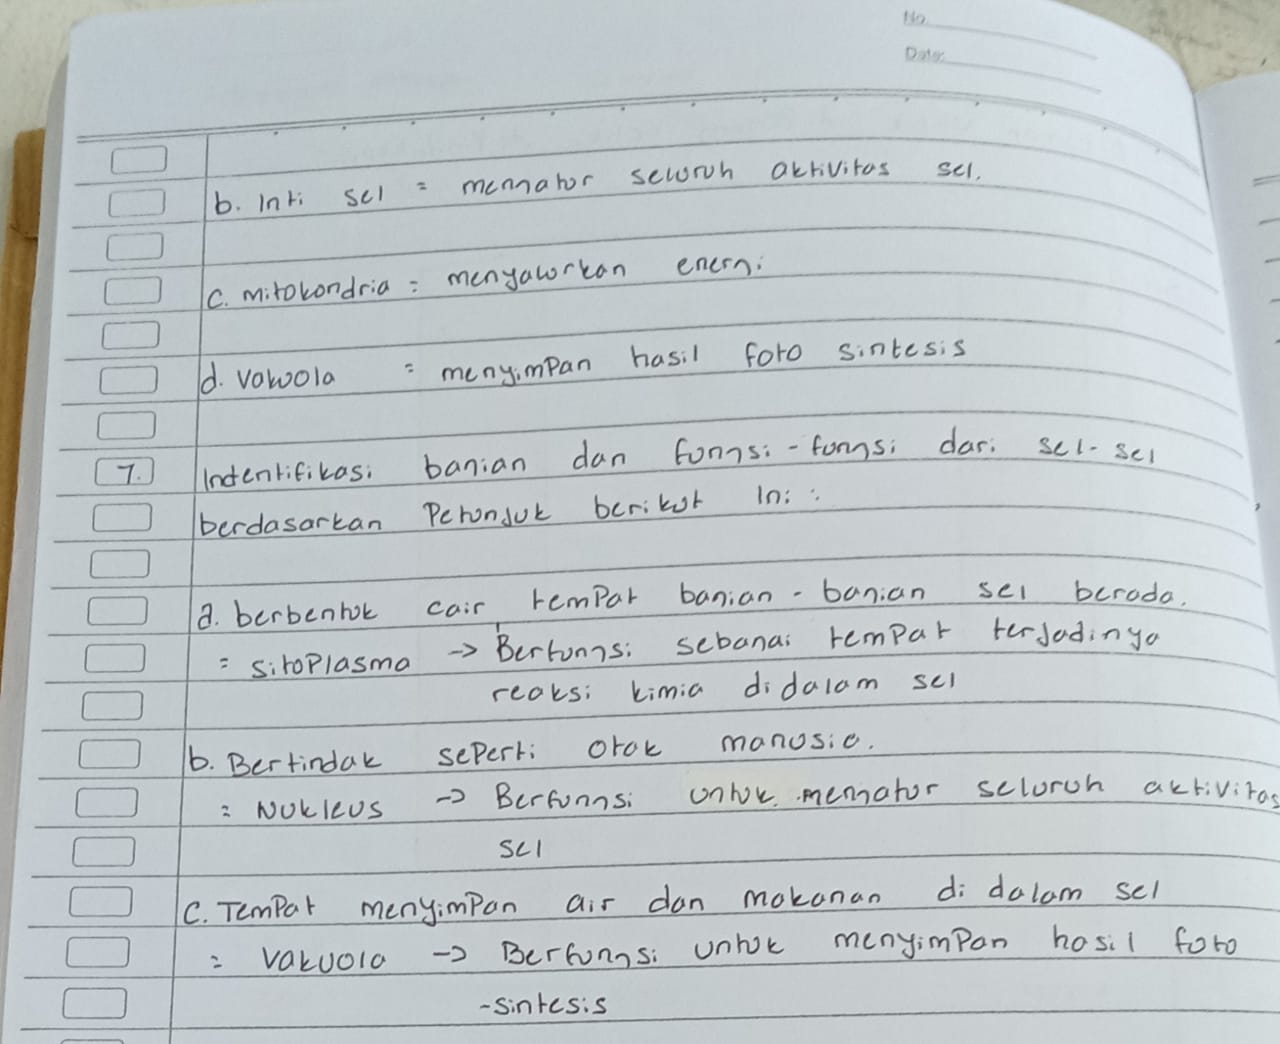 No.
Date:
b. Inti sel = mengatur seluruh aktivitas sel.
c. mitokondria = menyalurkan energi
d. Vakuola = menyimpan hasil foto sintesis
7. Indentifikasi bagian dan fungsi-fungsi dari sel-sel
berdasarkan Petunjuk berikut Ini :
a. berbentuk cair tempat bagian-bagian sel berada.
= sitoplasma → Berfungsi sebagai tempat terjadinya
reaksi kimia didalam sel
b. Bertindak seperti otak manusia.
= Nukleus → Berfungsi untuk mengatur seluruh aktivitas
sel
c. Tempat menyimpan air dan makanan di dalam sel
= Vakuola → Berfungsi untuk menyimpan hasil foto
-sintesis